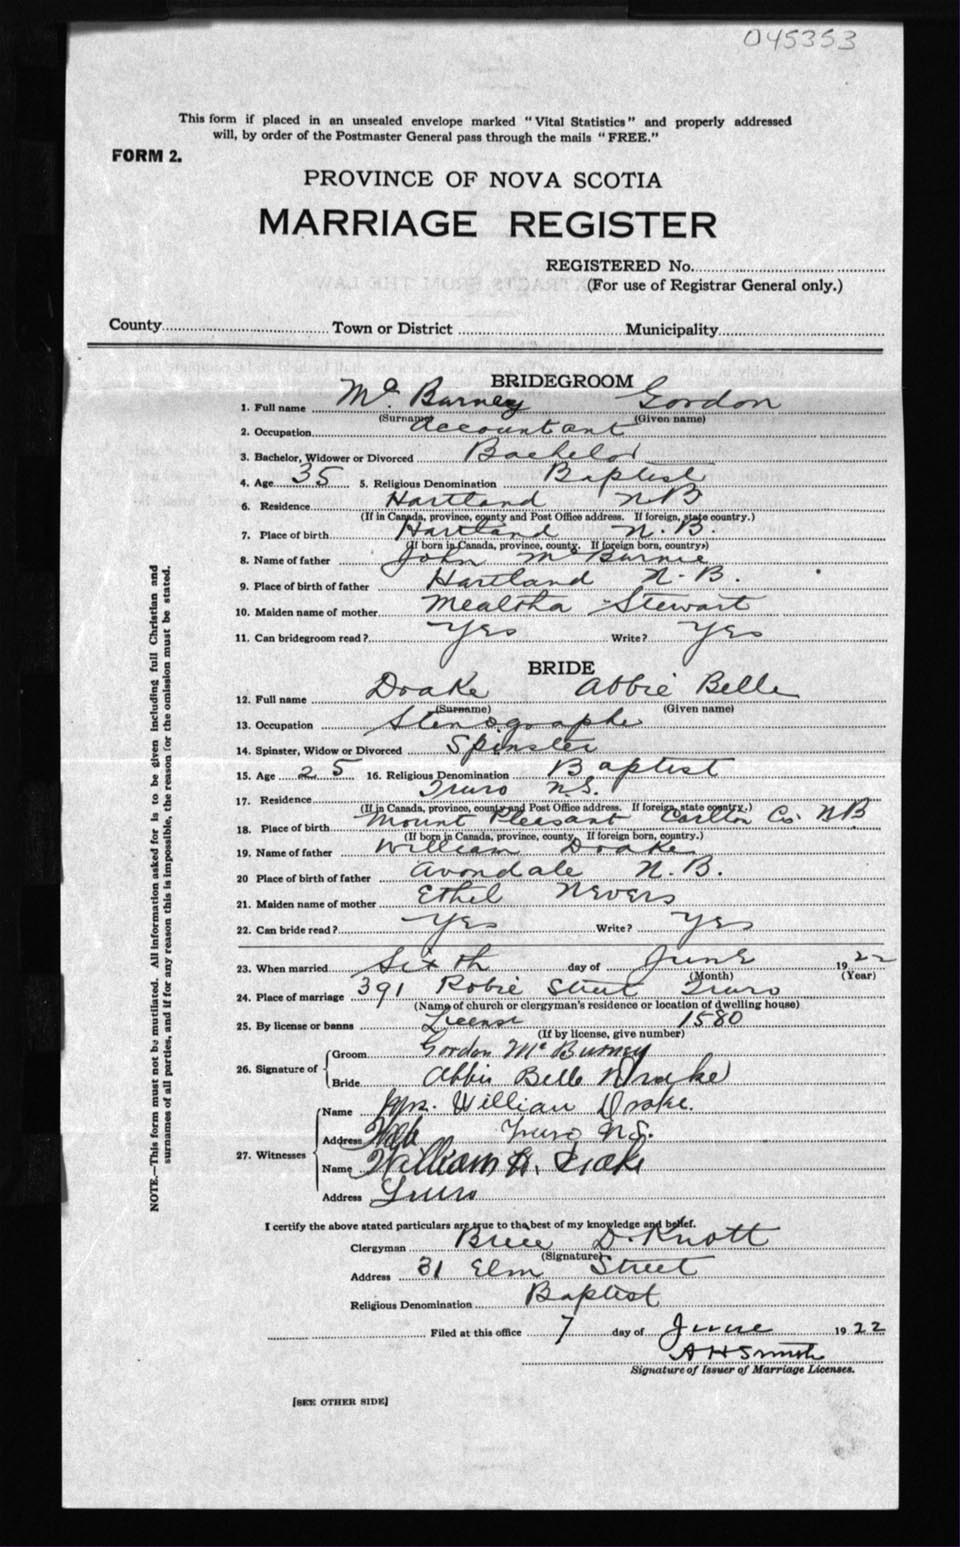 045353
This form if placed in an unsealed envelope marked "Vital Statistics" and properly addressed
will, by order of the Postmaster General pass through the mails "FREE."
FORM 2.
PROVINCE OF NOVA SCOTIA
MARRIAGE REGISTER
REGISTERED No.
(For use of Registrar General only.)
County Town or District Municipality
BRIDEGROOM
1. Full name Mc Burney Gordon
(Surname) (Given name)
2. Occupation Accountant
3. Bachelor, Widower or Divorced Bachelor
4. Age 35 5. Religious Denomination Baptist
6. Residence Hartland N B
(If in Canada, province, county and Post Office address. If foreign, state country.)
7. Place of birth Hartland N. B.
(If born in Canada, province, county. If foreign born, country.)
8. Name of father John Mc Burnie
9. Place of birth of father Hartland N. B.
10. Maiden name of mother Mealtha Stewart
11. Can bridegroom read? Yes Write? Yes
BRIDE
12. Full name Doake Abbie Belle
(Surname) (Given name)
13. Occupation Stenographer
14. Spinster, Widow or Divorced Spinster
15. Age 25 16. Religious Denomination Baptist
17. Residence Truro N.S.
(If in Canada, province, county and Post Office address. If foreign, state country.)
18. Place of birth Mount Pleasant Carlton Co. N B
(If born in Canada, province, county. If foreign born, country.)
19. Name of father William Doake
20 Place of birth of father Avondale N. B.
21. Maiden name of mother Ethel Nevers
22. Can bride read? Yes Write? Yes
23. When married Sixth day of June 1922
(Month) (Year)
24. Place of marriage 391 Robie Street Truro
(Name of church or clergyman's residence or location of dwelling house)
25. By license or banns License 1580
(If by license, give number)
26. Signature of
Groom Gordon Mc Burney
Bride Abbie Belle Drake
27. Witnesses
Name Mrs. William Drake.
Address Truro N.S.
Name William H. Drake
Address Truro
I certify the above stated particulars are true to the best of my knowledge and belief.
Clergyman Brice D. Knott
(Signature)
Address 31 Elm Street
Religious Denomination Baptist
Filed at this office 7 day of June 1922
A H Smith
Signature of Issuer of Marriage Licenses.
[SEE OTHER SIDE]
NOTE.—This form must not be mutilated. All information asked for is to be given including full Christian and
surnames of all parties, and if for any reason this is impossible, the reason for the omission must be stated.